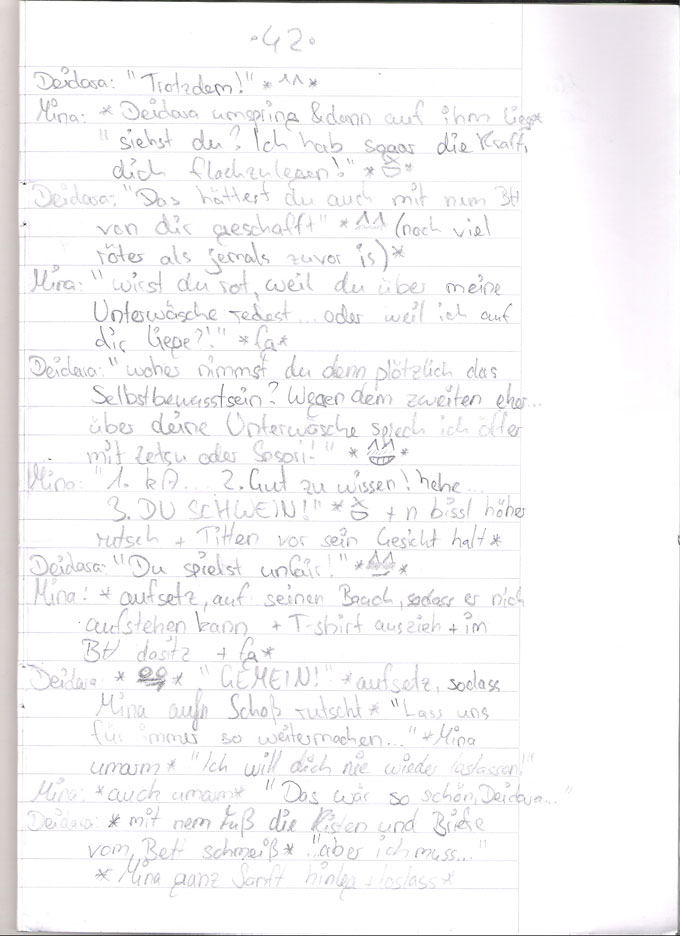 ·42·
Deidara: "Trotzdem!" *^^*
Mina: *Deidara umspring & dann auf ihm lieg*
"siehst du? Ich hab sogar die Kraft,
dich flachzulegen!" *
Deidara: "Das hättest du auch mit nem BH
von dir geschafft" *^^ (noch viel
röter als jemals zuvor is)*
Mina: "wirst du rot, weil du über meine
Unterwäsche redest... oder weil ich auf
dir liege?!" *fg*
Deidara: "woher nimmst du denn plötzlich das
Selbstbewusstsein? Wegen dem zweiten eher...
über deine Unterwäsche sprech ich öfter
mit Zetsu oder Sasori!" *^^*
Mina: "1. kA... 2. Gut zu wissen! hehe...
3. DU SCHWEIN!" * + n bissl höher
rutsch + Titten vor sein Gesicht halt*
Deidara: "Du spielst unfair!" *^^*
Mina: *aufsetz, auf seinen Bauch, sodass er nich
aufstehen kann + T-shirt auszieh + im
BH dasitz + fg*
Deidara: * * "GEMEIN!" *aufsetz, sodass
Mina aufn Schoß rutscht* "Lass uns
für immer so weitermachen..." *Mina
umarm* "Ich will dich nie wieder loslassen!"
Mina: *auch umarm* "Das wär so schön, Deidara..."
Deidara: *mit nem Fuß die Kisten und Briefe
vom Bett schmeiß* "aber ich muss..."
*Mina ganz Sanft hinleg + loslass*